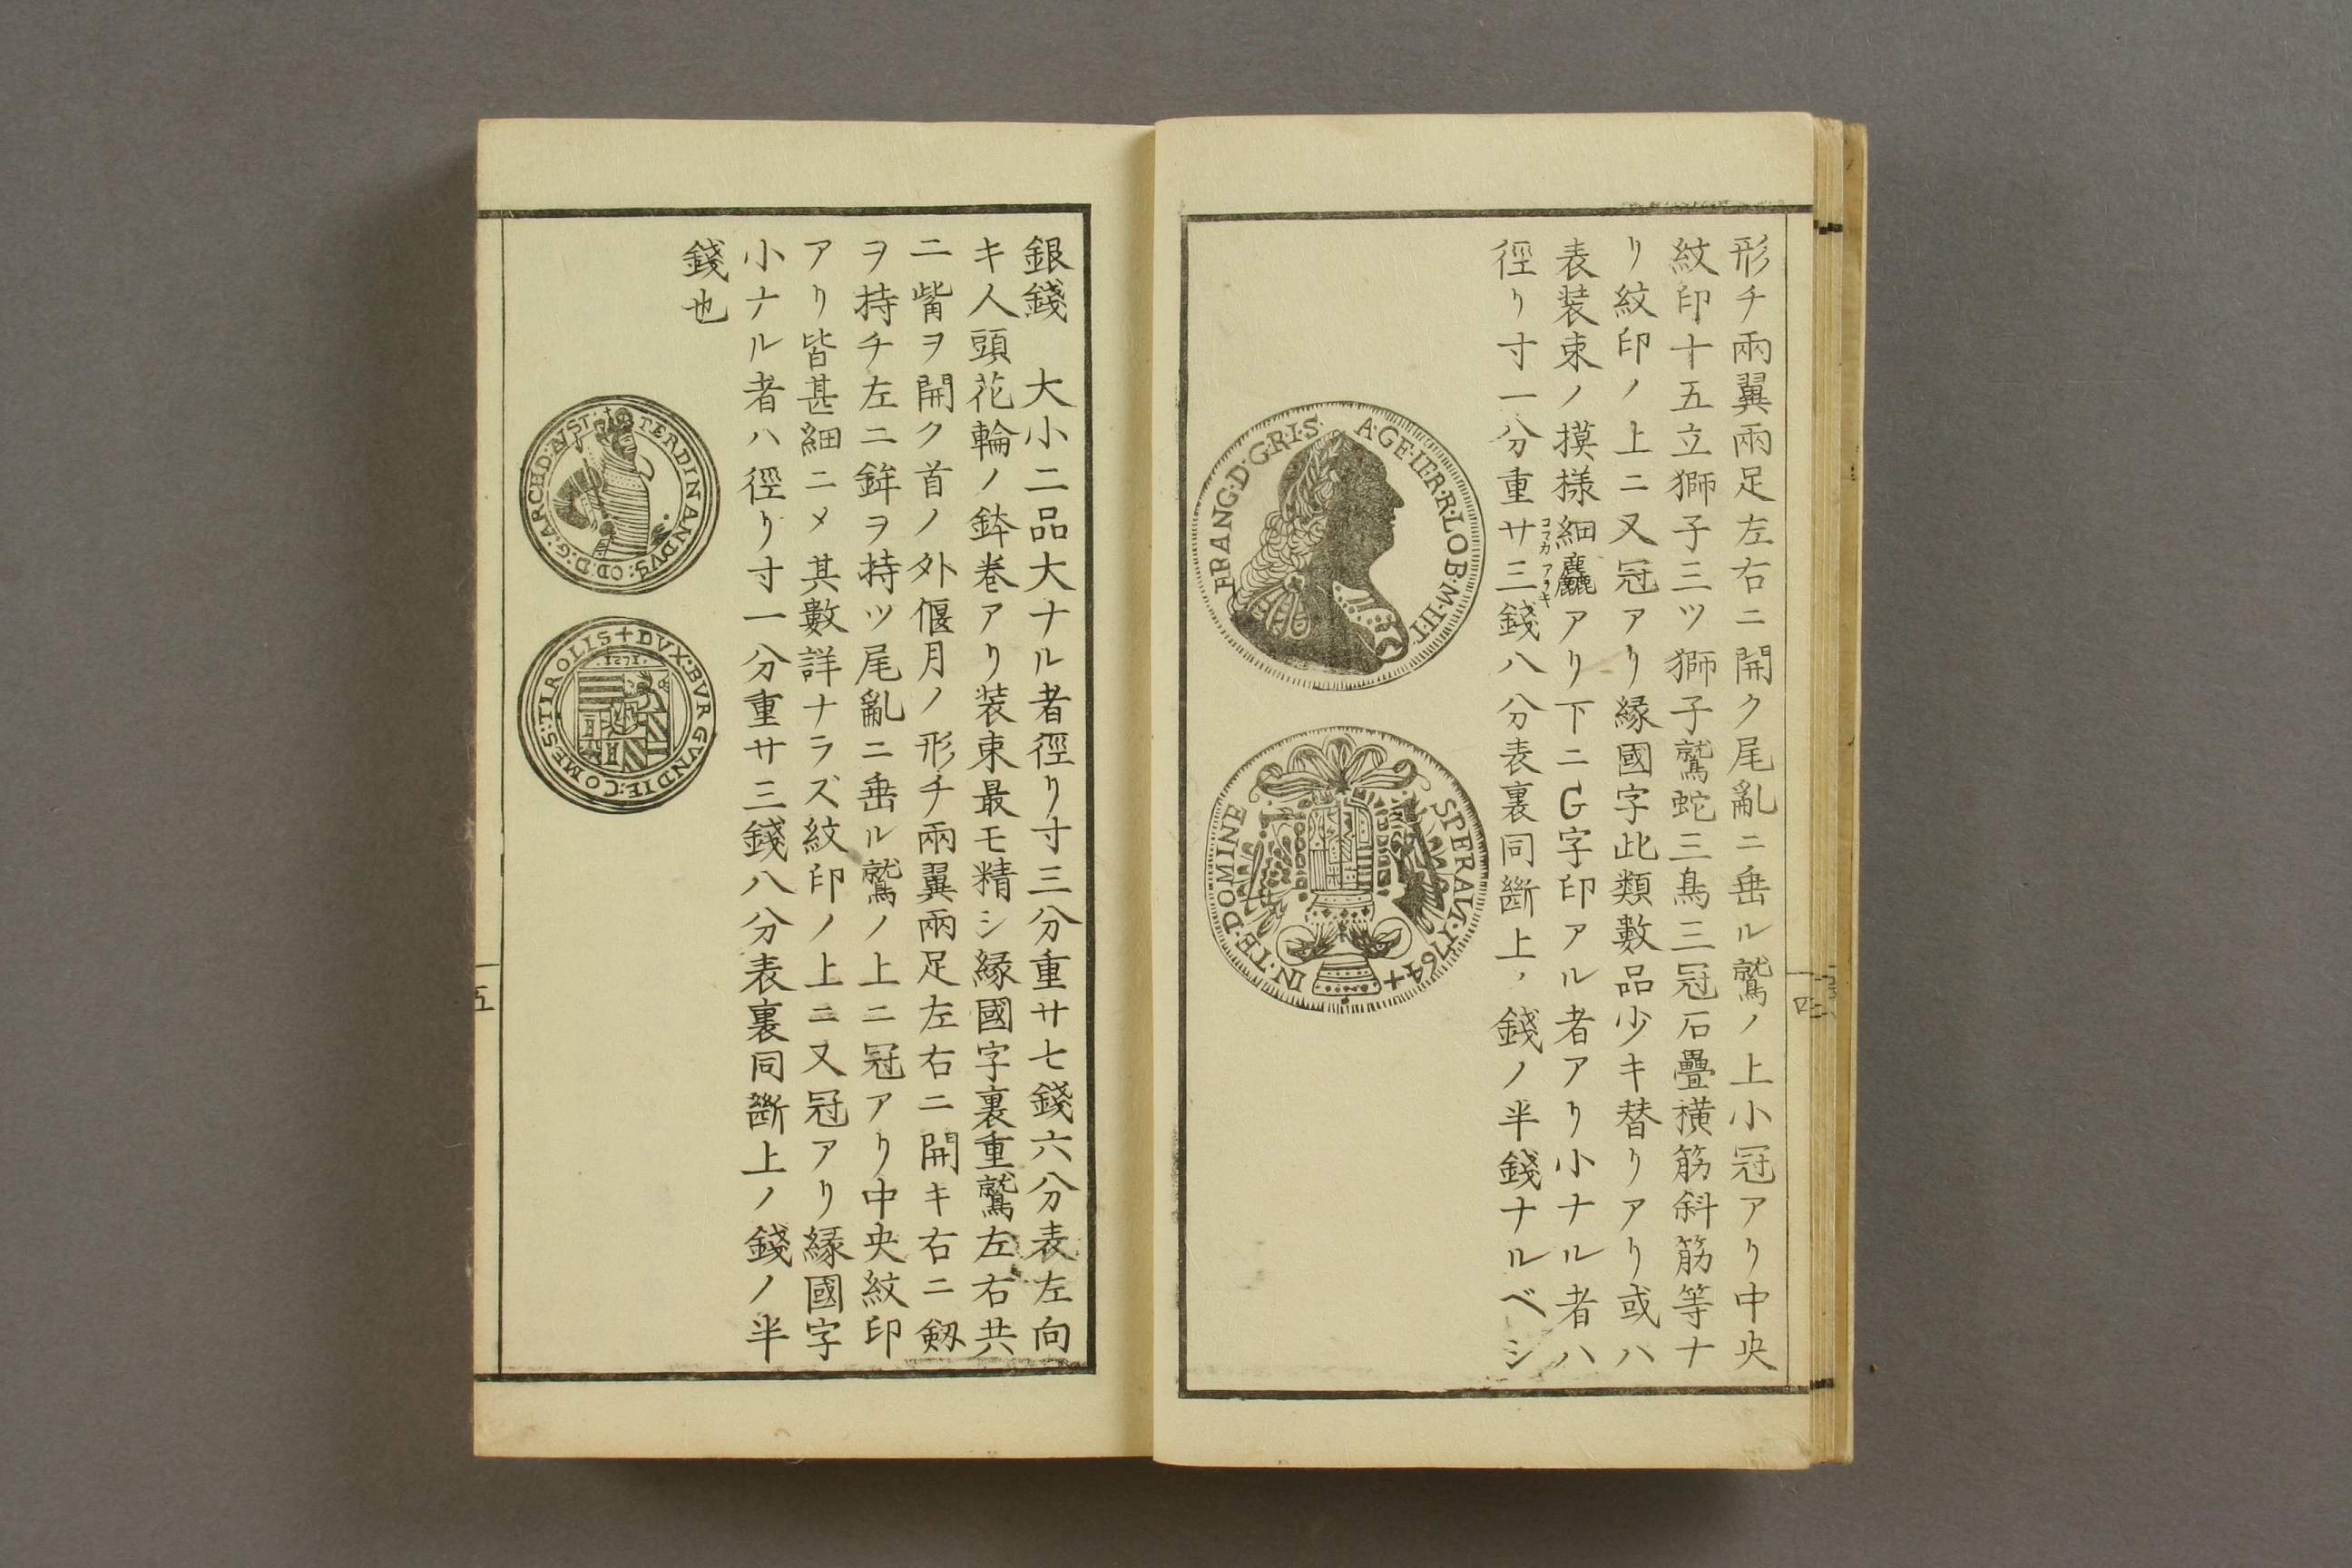 形チ兩翼兩足左右ニ開ク尾亂ニ垂ル鷲ノ上小冠アリ中央
紋印十五立獅子三ツ獅子鷲蛇三鳥三冠石疊横筋斜筋等ナ
リ紋印ノ上ニ又冠アリ縁國字此類數品少キ替リアリ或ハ
表装束ノ摸様細麤アリ下ニG字印アル者アリ小ナル者ハ
コマカ アラキ
徑リ寸一分重サ三錢八分表裏同斷上ノ錢ノ半錢ナルベシ
FRANG·D·G·RI·S· A·GE·IER·R·LOB·M·H·T
IN·TE·DOMINE SPERAVI·1764+
一四
銀錢 大小二品大ナル者徑リ寸三分重サ七錢六分表左向
キ人頭花輪ノ鉢巻アリ装束最モ精シ縁國字裏重鷲左右共
ニ觜ヲ開ク首ノ外偃月ノ形チ兩翼兩足左右ニ開キ右ニ劔
ヲ持チ左ニ鉾ヲ持ツ尾亂ニ垂ル鷲ノ上ニ冠アリ中央紋印
アリ皆甚細ニメ其數詳ナラズ紋印ノ上ニ又冠アリ縁國字
小ナル者ハ徑リ寸一分重サ三錢八分表裏同斷上ノ錢ノ半
錢也
TERDINANDVS:CD:D:G:ARCHD:AVST:
+DVX:BVRGVNDIE:COMES:TIROLIS
一五